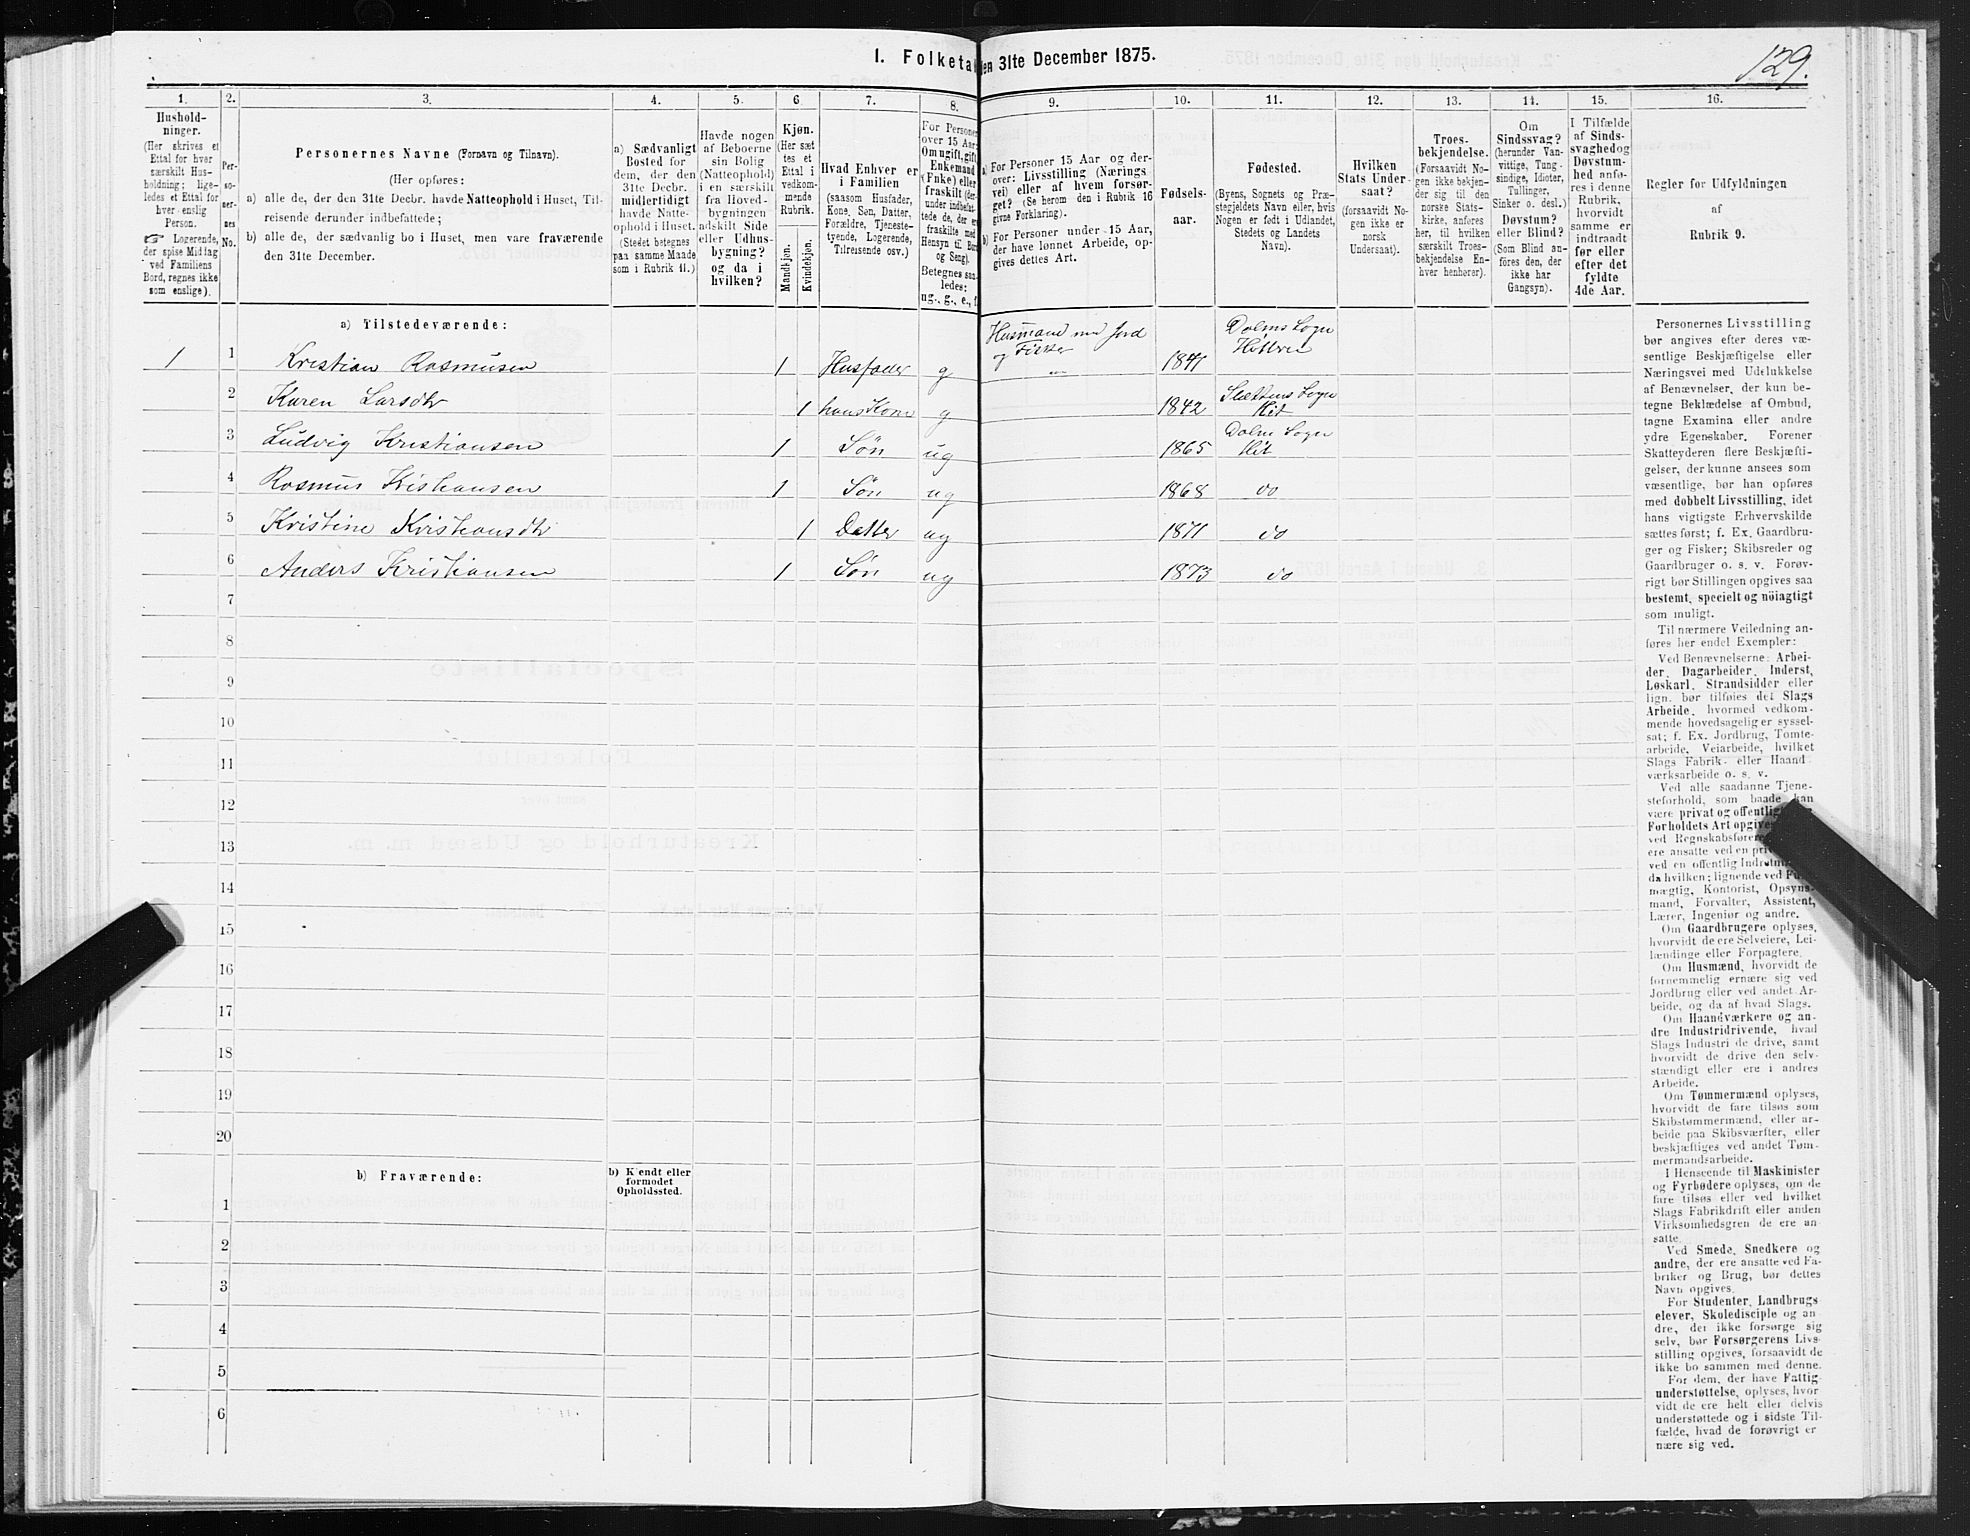 129.
I. Folketa
en 31te December 1875.
1. 2. 3. 4. 5. 6. 7. 8. 9. 10. 11. 12. 13. 14. 15. 16.
Hushold-
ninger.
(Her skrives et
Ettal for hver
særskilt Hus-
holdning; lige-
ledes et Ettal for
hver enslig
Person.
☞ Logerende,
der spise Middag
ved Familiens
Bord, regnes ikke
som enslige).
Per-
so-
ner-
nes
No.
Personernes Navne (Fornavn og Tilnavn).
(Her opføres:
a) alle de, der den 31te Decbr. havde Natteophold i Huset, Til-
reisende derunder indbefattede;
b) alle de, der sædvanlig bo i Huset, men vare fraværende
den 31te December.
a) Sædvanligt
Bosted for
dem, der den
31te Decbr.
midlertidigt
havde Natte-
ophold i Huset.
(Stedet betegnes
paa samme Maade
som i Rubrik 11.)
Havde nogen
af Beboerne
sin Bolig
(Natteophold)
i en særskilt
fra Hoved-
bygningen
adskilt Side
eller Udhus-
bygning?
og da i
hvilken?
Kjøn.
(Her sæt
tes et
Ettal i
vedkom-
mende
Rubrik.
Mandkjøn.
Kvindekjøn.
Hvad Enhver er
i Familien
(saasom Husfader,
Kone, Søn, Datter,
Forældre, Tjeneste-
tyende, Logerende,
Tilreisende osv.)
For Personer
over 15 Aar:
Om ugift, gift,
Enkemand
(Enke) eller
fraskilt (der-
under indbefat-
tede de, der er
fraskilte med
Hensyn til Bord
og Seng).
Betegnes saa-
ledes:
ug., g., e., f.
a) For Personer 15 Aar og der-
over: Livsstilling (Nærings
vei) eller af hvem forsør-
get? (Se herom den i Rubrik 16
givne Forklaring).
b) For Personer under 15 Aar,
der have lønnet Arbeide, op-
gives dettes Art.
Fødsels-
aar.
Fødested.
(Byens, Sognets og Præ-
stegjeldets Navn eller, hvis
Nogen er født i Udlandet,
Stedets og Landets
Navn).
Hvilken
Stats Under-
saat?
(forsaavidt No-
gen ikke er
norsk
Undersaat).
Troes-
bekjendelse.
(Forsaavidt No-
gen ikke bekjen-
der sig til den
norske Stats-
kirke, anføres
her, til hvilken
særskilt Troes-
bekjendelse En-
hver henhører).
Om
Sindssvag?
(herunder Van-
vittige, Tung-
sindige, Idioter,
Tullinger,
Sinker o. desl.)
Døvstum?
eller Blind?
(Som Blind an-
føres den, der
ikke har
Gangsyn).
I Tilfælde
af Sinds-
svaghed og
Døvstum-
hed anfø-
res i denne
Rubrik,
hvorvidt
samme er
indtraadt
før eller
efter det
fyldte
4de Aar.
Regler for Udfyldningen
af
Rubrik 9.
a) Tilstedeværende:
Husmand med Jord
og Fisker
Dolms Sogn
Hitteren
1 1 Kristian Rasmusen 1 Husfader g 1841
2 Karen Larsdtr 1 hans Kone g 1842 Slettens Sogn
Hit
3 Ludvig Kristiansen 1 Søn ug 1865 Dolm Sogn
Hit
4 Rasmus Kristiansen 1 Søn ug 1868 do
5 Kristine Kristiansdtr 1 Datter ug 1871 do
6 Anders Kristiansen 1 Søn ug 1873 do
7
8
9
10
11
12
13
14
15
16
17
18
19
20
b) Fraværende:
b) Kjendt eller
formodet
Opholdssted.
1
2
3
4
5
6
Personernes Livsstilling
bør angives efter deres væ-
sentlige Beskjæftigelse eller
Næringsvei med Udelukkelse
af Benævnelser, der kun be-
tegne Beklædelse af Ombud,
tagne Examina eller andre
ydre Egenskaber. Forener
Skatteyderen flere Beskjæfti-
gelser, der kunne ansees som
væsentlige, bør han opføres
med dobbelt Livsstilling, idet
hans vigtigste Erhvervskilde
sættes først; f. Ex. Gaardbru-
ger og Fisker; Skibsreder og
Gaardbruger o. s. v. Forøv-
rigt bør Stillingen opgives saa
bestemt, specielt og nöiagtigt
som muligt.
Til nærmere Veiledning an-
føres her endel Exempler:
Ved Benævnelserne: Arbei-
der, Dagarbeider, Inderst,
Løskarl, Strandsidder eller
lign. bør tilføies det Slags
Arbeide, hvormed vedkom-
mende hovedsagelig er syssel-
sat; f. Ex. Jordbrug, Tomte-
arbeide, Veiarbeide, hvilket
Slags Fabrik- eller Haand
værksarbeide o. s. v.
Ved alle saadanne Tjene-
steforhold, som baade kan
være privat og offentlig
Forholdets Art opgives
ved Regnskabsførere
ere ansatte ved en pri
ved en offentlig Indretn
da hvilken; lignende ved Fu
mægtig, Kontorist, Opsyns-
mand, Forvalter, Assistent,
Lærer, Ingeniør og andre.
Om Gaardbrugere oplyses,
hvorvidt de ere Selveiere, Lei-
lændinge eller Forpagtere.
Om Husmænd, hvorvidt de
fornemmelig ernære sig ved
Jordbrug eller ved andet Ar-
beide, og da af hvad Slags.
Om Haandværkere og an-
dre Industridrivende, hvad
Slags Industri de drive, samt
hvorvidt de drive den selv-
stændigt eller ere i andres
Arbeide.
Om Tømmermænd oplyses,
hvorvidt de fare tilsøs som
Skibstømmermænd, eller ar-
beide paa Skibsværfter, eller
beskjæftiges ved andet Tøm-
mermandsarbeide.
I Henseende til Maskinister
og Fyrbødere oplyses, om de
fare tilsøs eller ved hvilket
Slags Fabrikdrift eller anden
Virksomhedsgren de ere an-
satte.
Ved Smede, Snedkere og
andre, der ere ansatte ved Fa-
briker og Brug, bør dettes
Navn opgives.
For Studenter, Landbrugs
elever, Skoledisciple og an-
dre, der ikke forsørge sig
selv, bør Forsørgerens Livs-
stilling opgives, forsaavidt de
ikke bo sammen med denne.
For dem, der have Fattig-
understøttelse, oplyses, hvor
vidt de ere helt eller delvis
understøttede og i sidste Til-
fælde, hvad de forøvrigt er
nære sig ved.